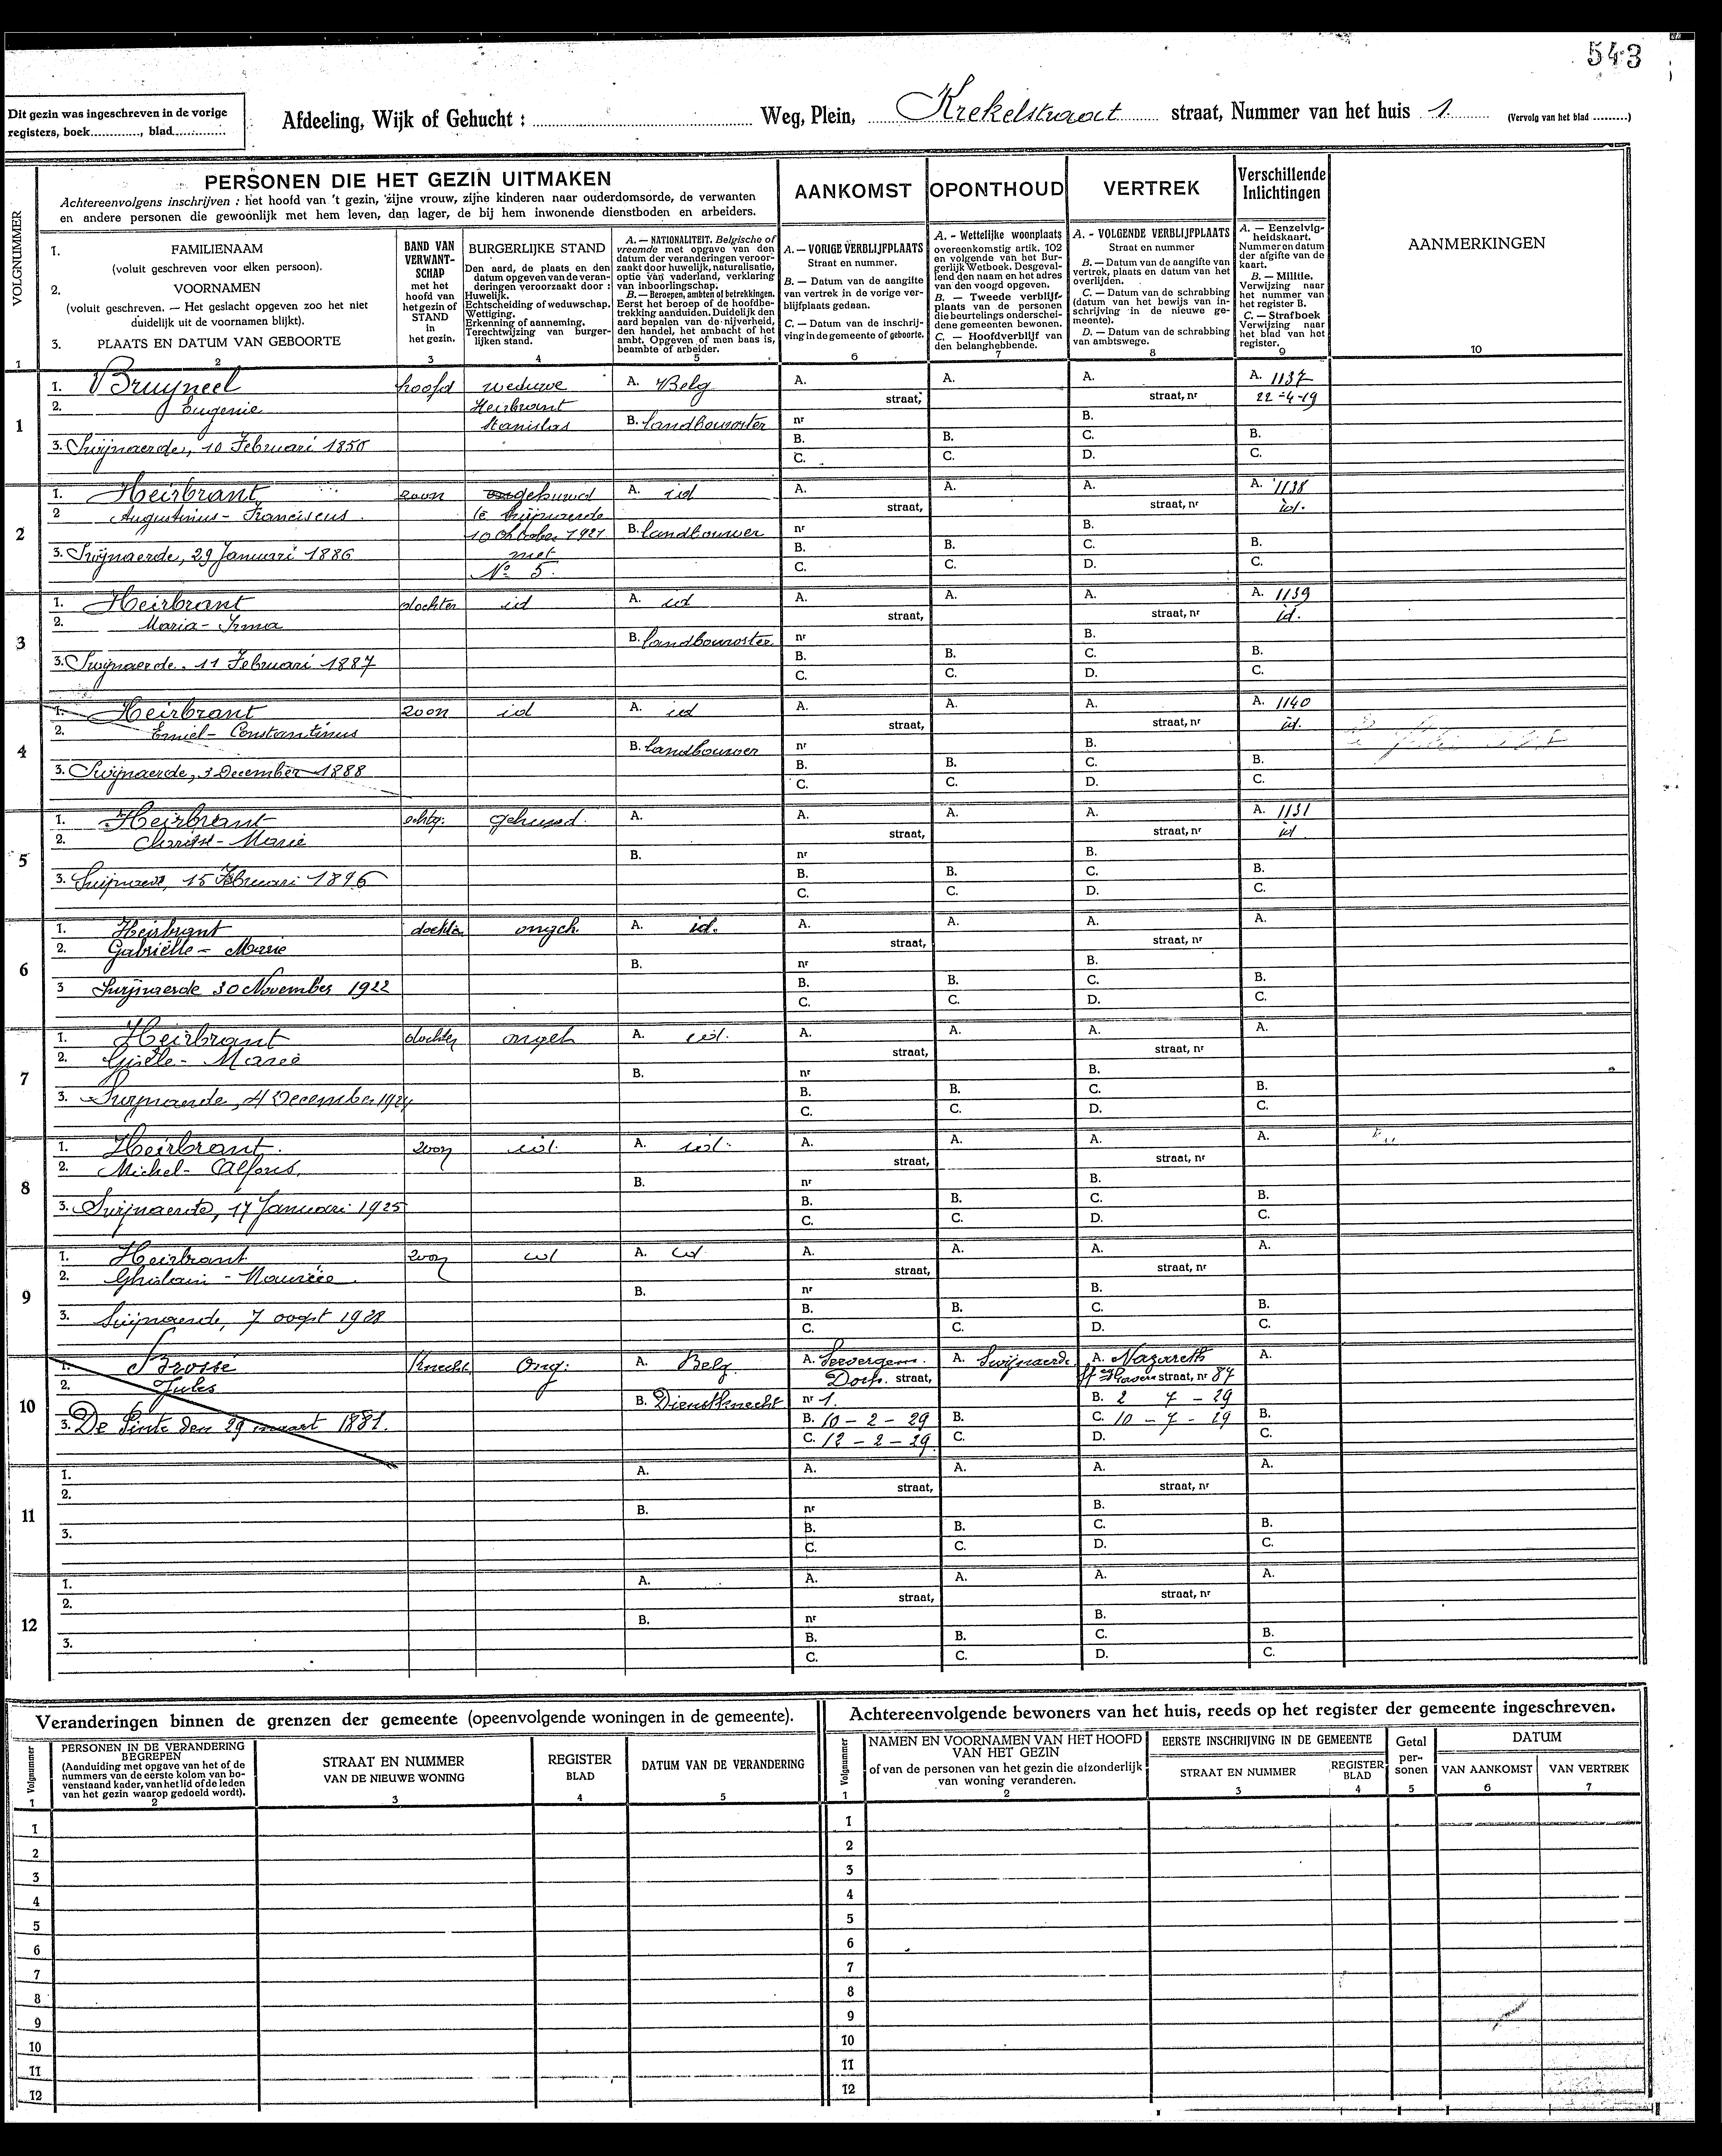 543
Dit gezin was ingeschreven in de vorige
registers, boek............, blad..............
Afdeeling, Wijk of Gehucht : .......... Weg, Plein, Krekelstraat straat, Nummer van het huis 1. (Vervolg van het blad .........)
VOLGNUMMER
PERSONEN DIE HET GEZIN UITMAKEN
Achtereenvolgens inschrijven : het hoofd van 't gezin, zijne vrouw, zijne kinderen naar ouderdomsorde, de verwanten
en andere personen die gewoonlijk met hem leven, dan lager, de bij hem inwonende dienstboden en arbeiders.
AANKOMST
OPONTHOUD
VERTREK
Verschillende
Inlichtingen
1. FAMILIENAAM
(voluit geschreven voor elken persoon).
2. VOORNAMEN
(voluit geschreven. — Het geslacht opgeven zoo het niet
duidelijk uit de voornamen blijkt).
3. PLAATS EN DATUM VAN GEBOORTE
BAND VAN
VERWANT-
SCHAP
met het
hoofd van
het gezin of
STAND
in
het gezin.
BURGERLIJKE STAND
Den aard, de plaats en den
datum opgeven van de veran-
deringen veroorzaakt door :
Huwelijk.
Echtscheiding of weduwschap.
Wettiging.
Erkenning of aanneming.
Terechtwijzing van burger-
lijken stand.
A. — NATIONALITEIT. Belgische of
vreemde met opgave van den
datum der veranderingen veroor-
zaakt door huwelijk, naturalisatie,
optie van vaderland, verklaring
van inboorlingschap.
B. — Beroepen, ambten of betrekkingen.
Eerst het beroep of de hoofdbe-
trekking aanduiden. Duidelijk den
aard bepalen van de nijverheid,
den handel, het ambacht of het
ambt. Opgeven of men baas is,
beambte of arbeider.
A. — VORIGE VERBLIJFPLAATS
Straat en nummer.
B. — Datum van de aangifte
van vertrek in de vorige ver-
blijfplaats gedaan.
C. — Datum van de inschrij-
ving in de gemeente of geboorte.
A. - Wettelijke woonplaats
overeenkomstig artik. 102
en volgende van het Bur-
gerlijk Wetboek. Desgeval-
lend den naam en het adres
van den voogd opgeven.
B. — Tweede verblijf-
plaats van de personen
die beurtelings onderschei-
dene gemeenten bewonen.
C. — Hoofdverblijf van
den belanghebbende.
A. - VOLGENDE VERBLIJFPLAATS
Straat en nummer
B. — Datum van de aangifte van
vertrek, plaats en datum van het
overlijden.
C. — Datum van de schrabbing
(datum van het bewijs van in-
schrijving in de nieuwe ge-
meente).
D. — Datum van de schrabbing
van ambtswege.
A. — Eenzelvig-
heidskaart.
Nummer en datum
der afgifte van de
kaart.
B. — Militie.
Verwijzing naar
het nummer van
het register B.
C. — Strafboek
Verwijzing naar
het blad van het
register.
AANMERKINGEN
1 2 3 4 5 6 7 8 9 10
1
1. Bruyneel hoofd weduwe A. Belg A. A. A. A. 1137
2. Eugenie Heirbrant straat, straat, nr 22-4-19
Stanislas B. landbouwster nr B.
3. Swijnaerde, 10 Februari 1850 B. B. C. B.
C. C. D. C.
2
1. Heirbrant zoon gehuwd A. id A. A. A. A. 1138
2 Augustinus - Franciscus te Swijnaerde straat, straat, nr id.
10 October 1921 B. landbouwer nr B.
3. Swijnaerde, 29 Januari 1886 met B. B. C. B.
No 5. C. C. D. C.
3
1. Heirbrant dochter id A. id A. A. A. A. 1139
2. Maria - Irma straat, straat, nr id.
B. landbouwster nr B.
3. Swijnaerde. 11 Februari 1887 B. B. C. B.
C. C. D. C.
4
1. Heirbrant zoon id A. id A. A. A. A. 1140
2. Emiel - Constantinus straat, straat, nr id.
B. landbouwer nr B.
3. Swijnaerde, 3 December 1888 B. B. C. B.
C. C. D. C.
5
1. Heirbrant echtg. gehuwd. A. A. A. A. A. 1131
2. Marie straat, straat, nr id
B. nr B.
3. 15 Februari 1896 B. B. C. B.
C. C. D. C.
6
1. Heirbrant dochter ongeh. A. id. A. A. A. A.
2. Gabriëlle - Marie straat, straat, nr
B. nr B.
3 Swijnaerde 30 November 1922 B. B. C. B.
C. C. D. C.
7
1. Heirbrant dochter ongeh A. id. A. A. A. A.
2. Gisèle - Marie straat, straat, nr
B. nr B.
3. Swijnaerde, 4 December 192 B. B. C. B.
C. C. D. C.
8
1. Heirbrant. zoon id. A. id. A. A. A. A.
2. Michel - Alfons. straat, straat, nr
B. nr B.
3. Swijnaerde, 17 Januari 1925 B. B. C. B.
C. C. D. C.
9
1. Heirbrant zoon id A. id. A. A. A. A.
2. Ghislain - Maurice. straat, straat, nr
B. nr B.
3. Swijnaerde, 7 oogst 1928 B. B. C. B.
C. C. D. C.
10
1. Brossé Knecht Ong: A. Belg A. Seevergem. A. Swijnaerde A. Nazareth A.
2. Jules Dorp. straat, straat, nr 87
B. Dienstknecht nr 1. B. 2 7 - 29
3. De Pinte den 29 maart 1881. B. 10 - 2 - 29 B. C. 10 - 7 - 29 B.
C. 12 - 2 - 29. C. D. C.
11
1. A. A. A. A. A.
2. straat, straat, nr
B. nr B.
3. B. B. C. B.
C. C. D. C.
12
1. A. A. A. A. A.
2. straat, straat, nr
B. nr B.
3. B. B. C. B.
C. C. D. C.
Veranderingen binnen de grenzen der gemeente (opeenvolgende woningen in de gemeente).
Volgnummer
PERSONEN IN DE VERANDERING
BEGREPEN
(Aanduiding met opgave van het of de
nummers van de eerste kolom van bo-
venstaand kader, van het lid of de leden
van het gezin waarop gedoeld wordt).
STRAAT EN NUMMER
VAN DE NIEUWE WONING
REGISTER
BLAD
DATUM VAN DE VERANDERING
1 2 3 4 5
1
2
3
4
5
6
7
8
9
10
11
12
Achtereenvolgende bewoners van het huis, reeds op het register der gemeente ingeschreven.
Volgnummer
NAMEN EN VOORNAMEN VAN HET HOOFD
VAN HET GEZIN
of van de personen van het gezin die afzonderlijk
van woning veranderen.
EERSTE INSCHRIJVING IN DE GEMEENTE
STRAAT EN NUMMER
REGISTER
BLAD
Getal
per-
sonen
DATUM
VAN AANKOMST
VAN VERTREK
1 2 3 4 5 6 7
1
2
3
4
5
6
7
8
9
10
11
12